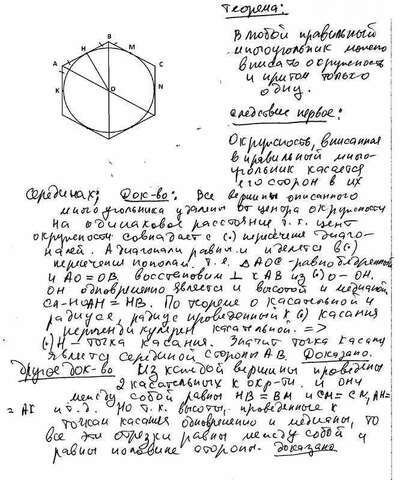 Теорема:
В любой правильный
многоугольник можно
вписать окружность
и притом только
одну.
следствие первое:
Окружность, вписанная
в правильный много-
угольник касается
его сторон в их
серединах; Док-во: Все
вершины описанного
многоугольника удалены от центра окружности
на одинаковое расстояние т.к. цент
окружности совпадает с (.) пересечения диаго-
налей. А диагонали равны и делятся в (.)
пересечения пополам, т.е. △ АОС - равнобедренный
и АО = ОВ. восстановим ⊥ к АВ из (.) О - ОН.
ОН одновременно является и высотой и медианой
АН = НВ. По теореме о касательной и
радиусе, радиус проведённый к (.) касания
касательной. =>
(.) Н - точка касания. Значит точка касания
является серединой стороны АВ. Доказано.
Другое док-во Из каждой вершины проведены
2 касательных к окр-ти. и они
между собой равны НВ = ВМ и СМ = СN, АН =
= АК и т.д. Но т.к. высоты, проведенные к
точкам касания одновременно и медианы, то
все эти отрезки равны между собой и
равны половине стороны. Доказано
B
H
M
A
C
K
O
N